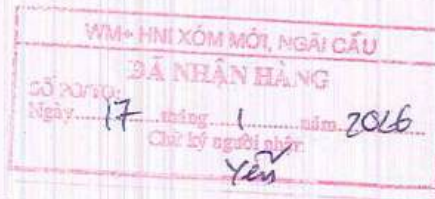 WM+ HNI XÓM MỚI, NGÃI CẦU
ĐÃ NHẬN HÀNG
SỐ PO/TO:
Ngày 17 tháng 1 năm 2026
Chữ ký người nhận
Yến